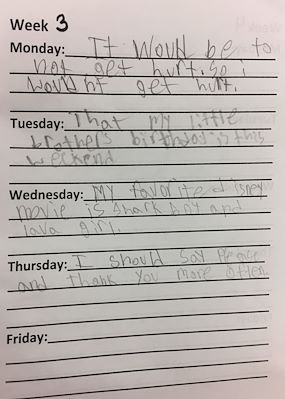 Week 3
Monday: It Would be to
not get hurt. so i
Would nt get hurt.
Tuesday: That my little
brothers birthday is this
weekend
Wednesday: My favorite disney
movie is shark boy and
lava girl.
Thursday: I should say Please
and thank you more often
Friday: